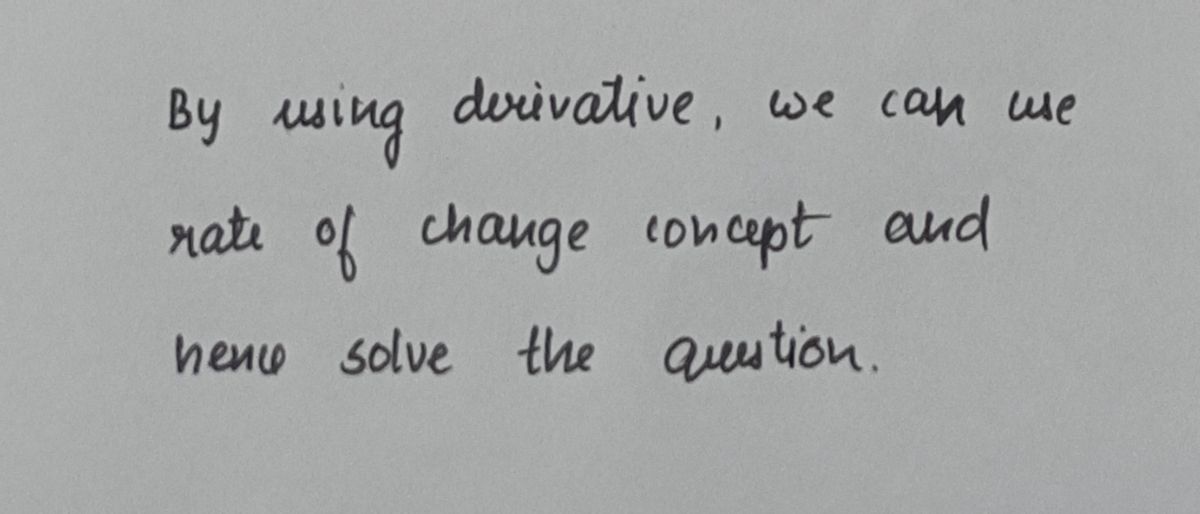 By using derivative, we can use
rate of change concept and
hence solve the question.